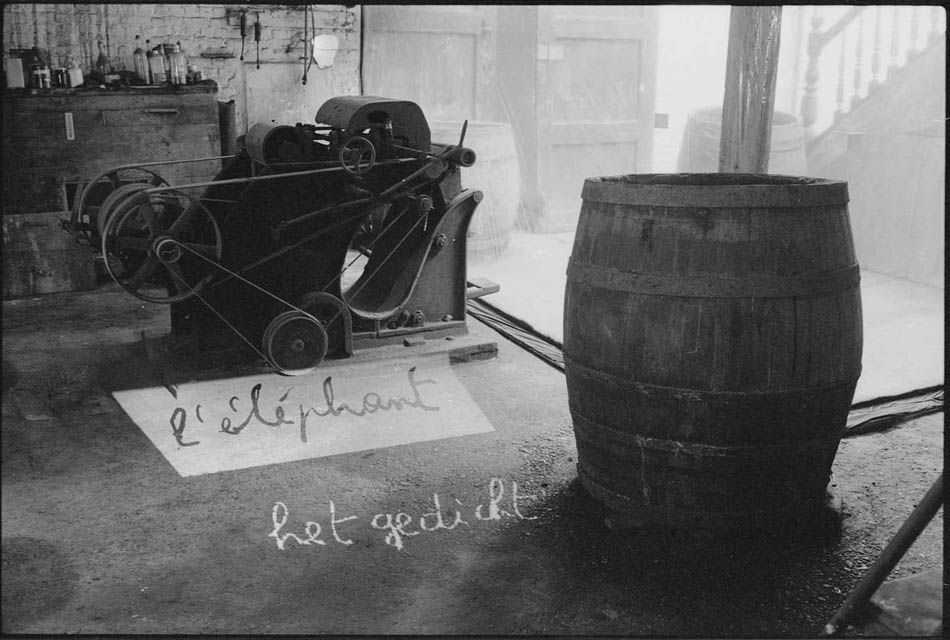 L'éléphant
het gedicht